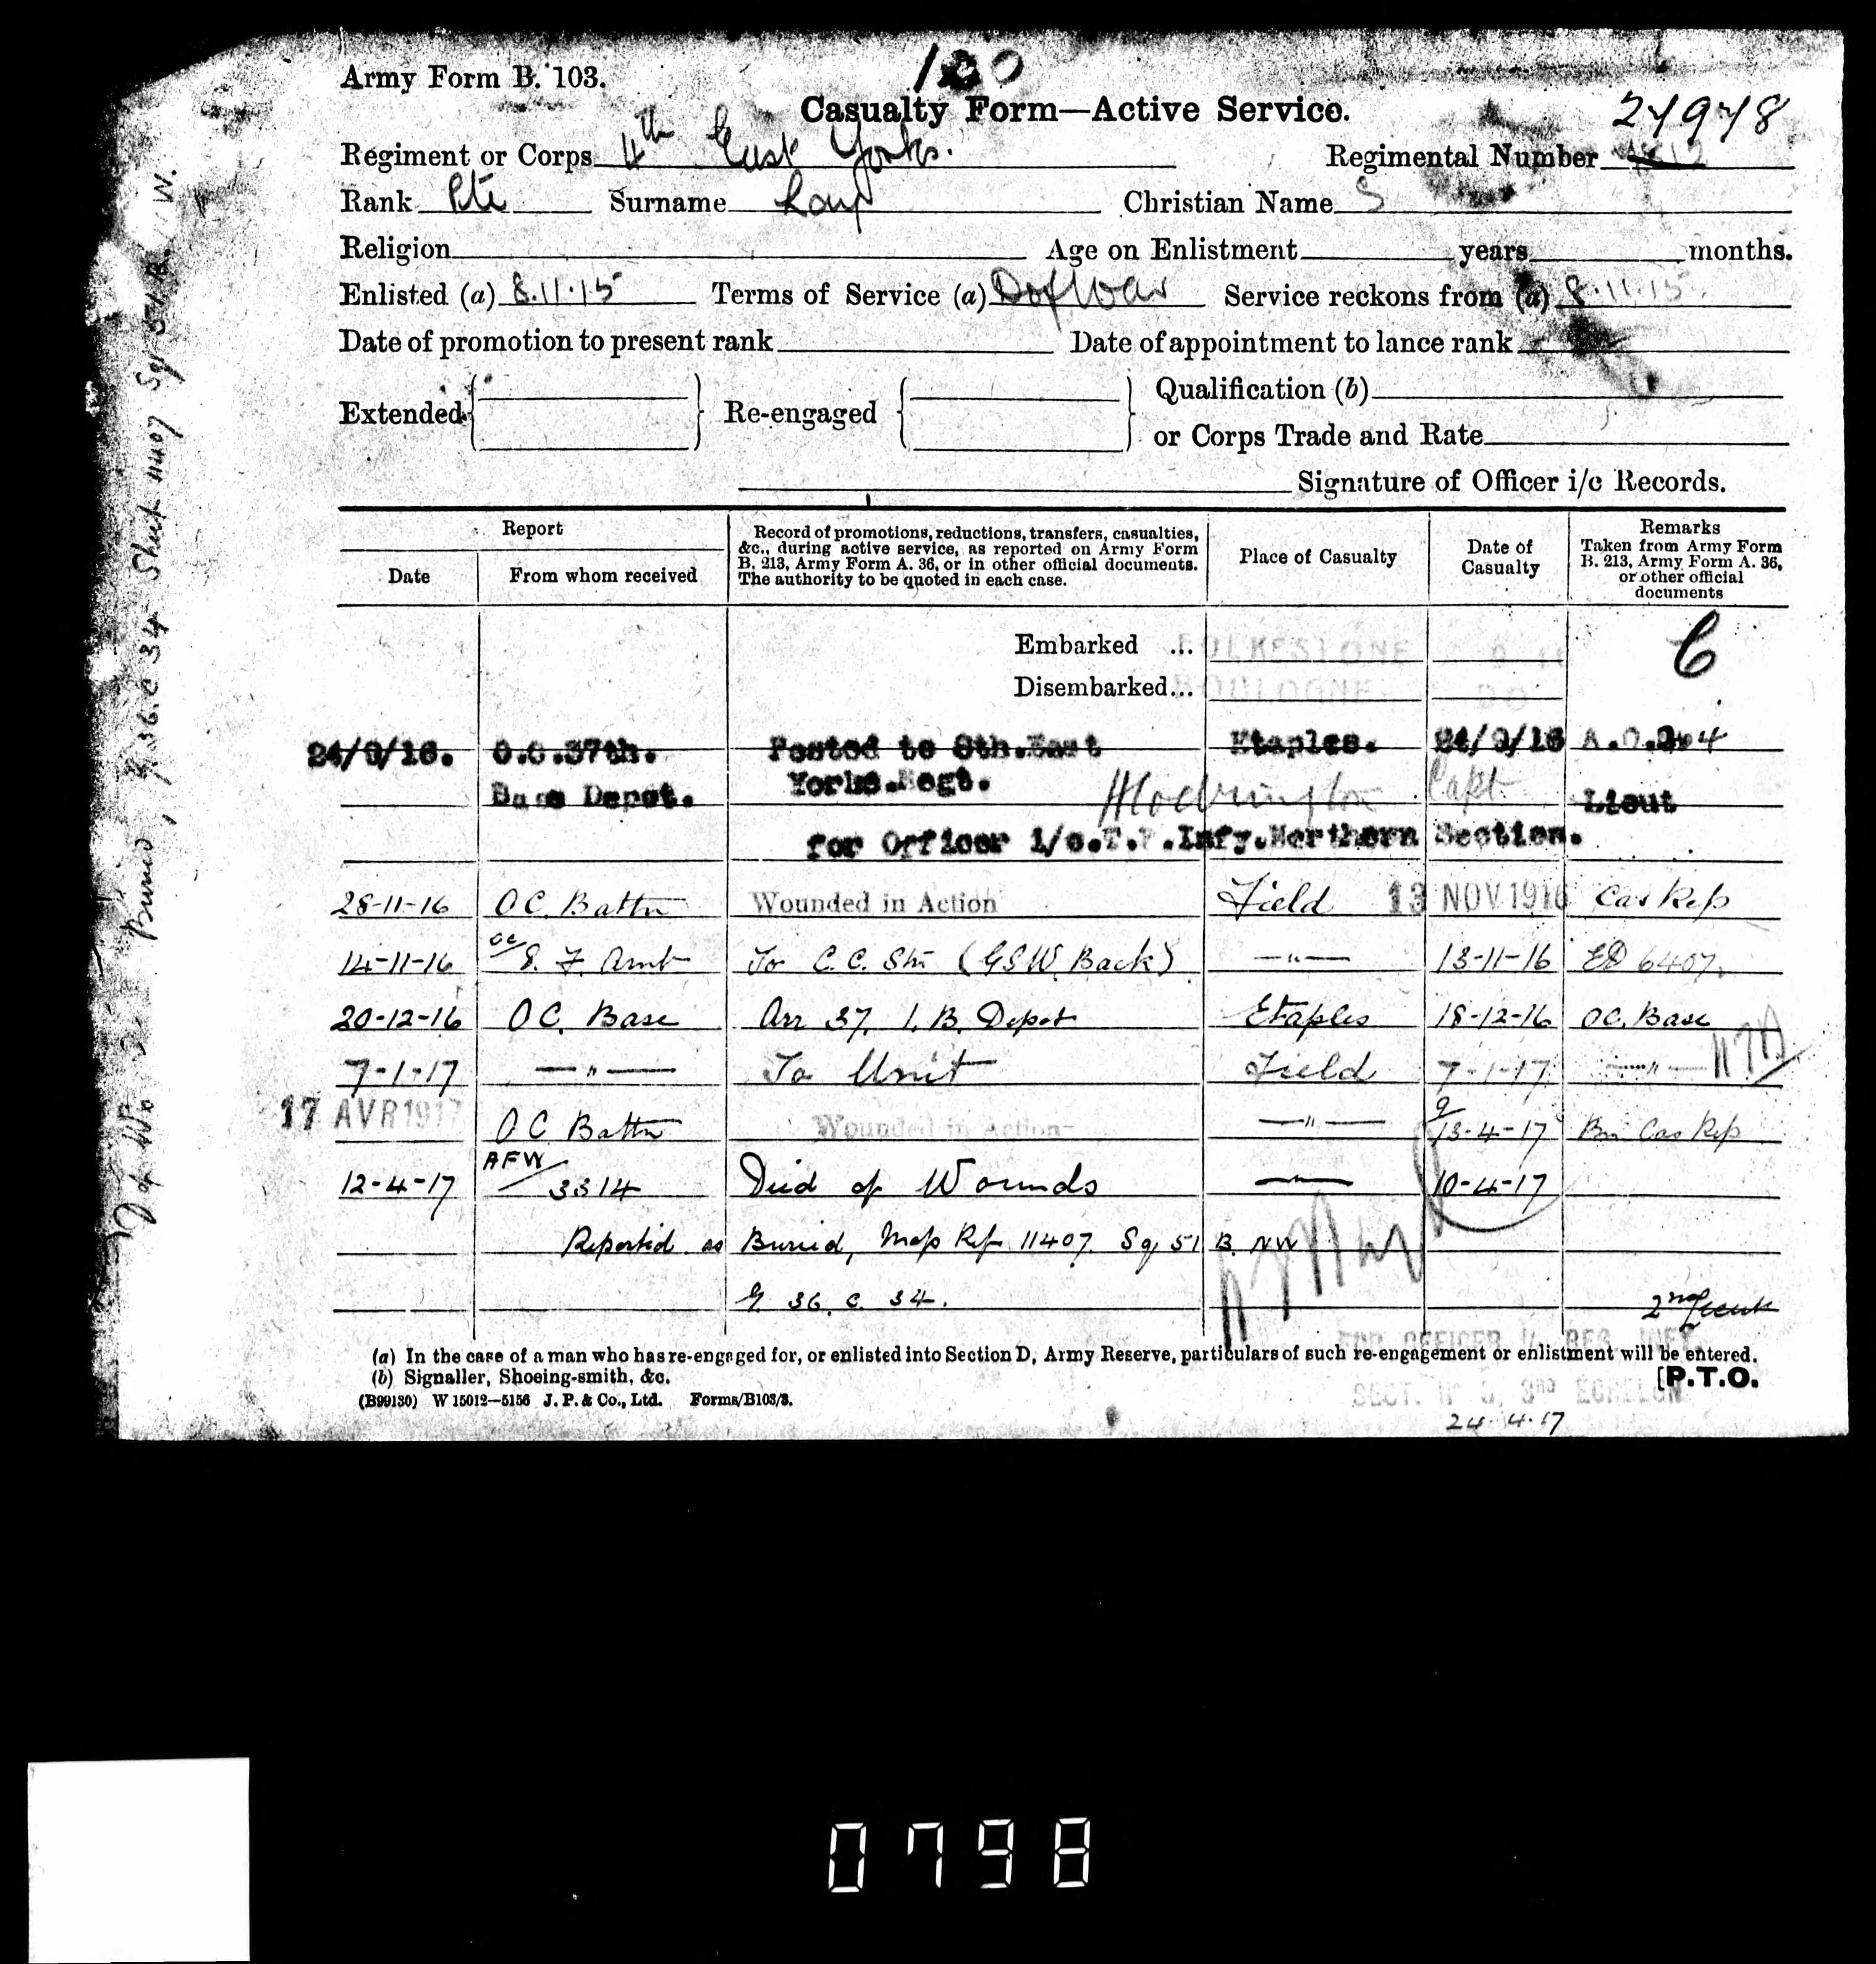 Army Form B. 103.
Casualty Form—Active Service.
Regiment or Corps 4th East Yorks. Regimental Number
Rank Pte Surname Christian Name S
Religion Age on Enlistment years months.
Enlisted (a) 8.11.15 Terms of Service (a) D of War Service reckons from (a) 8.11.15
Date of promotion to present rank Date of appointment to lance rank
Extended Re-engaged Qualification (b)
or Corps Trade and Rate
Signature of Officer i/c Records.
Report
Date From whom received
Record of promotions, reductions, transfers, casualties,
&c., during active service, as reported on Army Form
B. 213, Army Form A. 36, or in other official documents.
The authority to be quoted in each case.
Place of Casualty
Date of
Casualty
Remarks
Taken from Army Form
B. 213, Army Form A. 36,
or other official
documents
Embarked ... FOLKESTONE
Disembarked... BOULOGNE
C
24/9/16. O.C.37th. Posted to 8th.East Etaples. 24/9/16
Base Depot. Yorks.Regt. Capt Lieut
for Officer i/c.T.F.Infy.Northern Section.
28-11-16 OC. Battn Wounded in Action Field 13 NOV 1916 Cas Rep
14-11-16 OC 8. F. Amb To C. C. Stn (GSW Back) —"— 13-11-16 ED 6407.
20-12-16 OC. Base Arr 37. I. B. Depot Etaples 18-12-16 OC. Base
7-1-17 —"— To Unit Field 7-1-17 —"—
17 AVR 1917 OC Battn Wounded in Action —"— 9/13-4-17 Bn Cas Rep
12-4-17 AFW 3314 Died of Wounds —"— 10-4-17
Reported as Buried, Map Ref 11407 Sq 51 B. NW
G 36. c. 34.
2nd Lieut
FOR OFFICER I/C REG. INFY
(a) In the case of a man who has re-engaged for, or enlisted into Section D, Army Reserve, particulars of such re-engagement or enlistment will be entered.
(b) Signaller, Shoeing-smith, &c.
[P.T.O.
SECT. No 3, 3RD ECHELON
(B99130) W 15012—5156 J. P. & Co., Ltd. Forms/B103/3.
24.4.17
0798